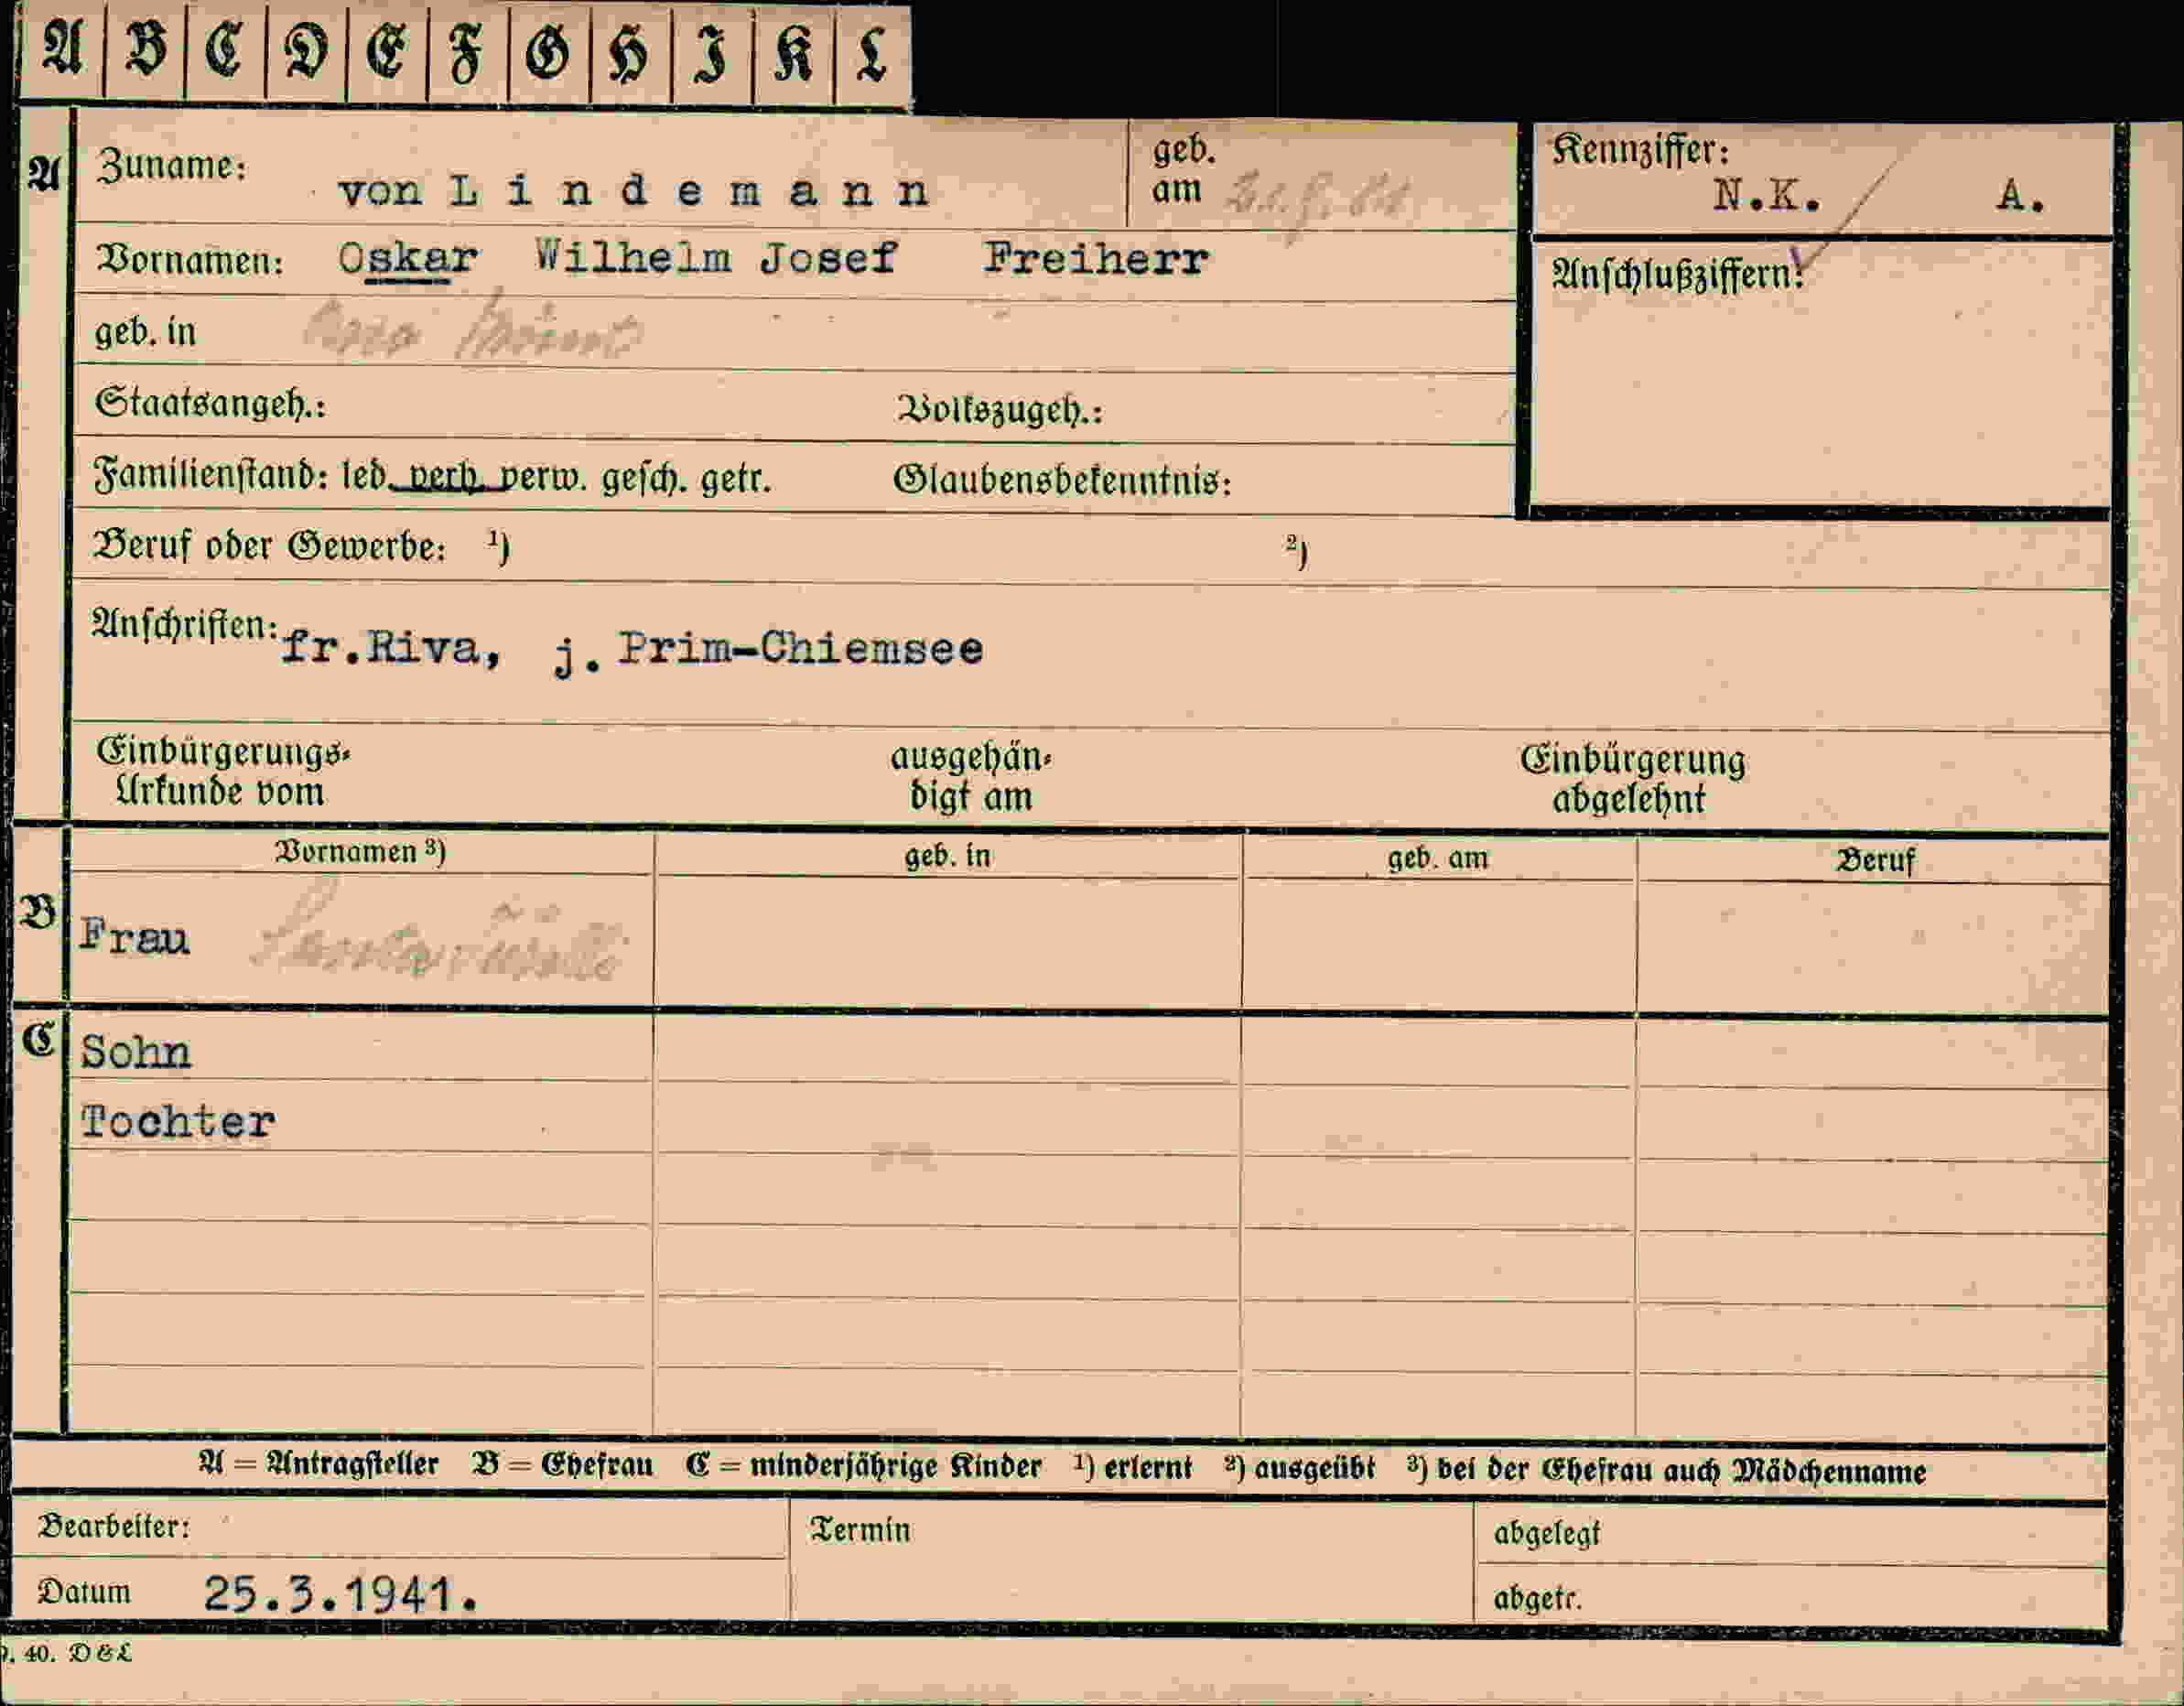 A B C D E F G H I K L
A Zuname: von L i n d e m a n n geb. am
Kennziffer: N.K. A.
Vornamen: Oskar Wilhelm Josef Freiherr
Anschlußziffern:
geb. in
Staatsangeh.: Volkszugeh.:
Familienstand: led. verh. verw. gesch. getr. Glaubensbekenntnis:
Beruf oder Gewerbe: ¹) ²)
Anschriften: fr.Riva, j. Prim-Chiemsee
Einbürgerungs- Urkunde vom ausgehän- digt am Einbürgerung abgelehnt
Vornamen ³) geb. in geb. am Beruf
B Frau
C Sohn
Tochter
A = Antragsteller B = Ehefrau C = minderjährige Kinder ¹) erlernt ²) ausgeübt ³) bei der Ehefrau auch Mädchenname
Bearbeiter: Termin abgelegt
Datum 25.3.1941. abgetr.
40. D&L